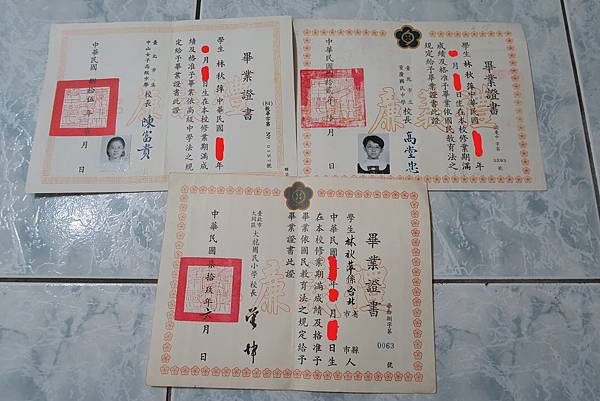 畢業證書
(84)
NO 0151號
學生 林秋萍 中華民國 年
月 日生在本校修業期滿成
績及格准予畢業依高級中學法之規
定給予畢業證書此證
臺北市立
中山女子高級中學 校長 陳富貴
中華民國 捌拾伍年 月 日
畢業證書
0293 號
學生 林秋萍 中華民國 年
月 日生在本校修業期滿
成績及格准予畢業依國民教育法之
規定給予畢業證書此證
臺北市立
重慶國民中學 校長 高堂忠
中華民國 年 月 日
畢業證書
0063 號
學生 林秋萍 係 台北 省市 縣市 人
中華民國 年 月 日生
在本校修業期滿成績及格准予
畢業依國民教育法之規定給予
畢業證書此證
臺北市
大同區 大龍國民小學 校長
中華民國 柒拾玖年 六月 日